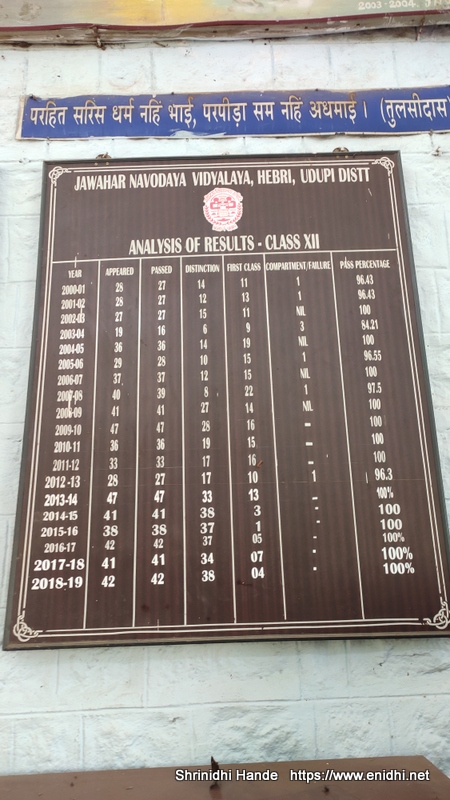 2003-2004,
परहित सरिस धर्म नहिं भाई, परपीड़ा सम नहिं अधमाई। (तुलसीदास)
JAWAHAR NAVODAYA VIDYALAYA, HEBRI, UDUPI DISTT
ANALYSIS OF RESULTS - CLASS XII
YEAR APPEARED PASSED DISTINCTION FIRST CLASS COMPARTMENT/FAILURE PASS PERCENTAGE
2000-01 28 27 14 11 1 96.43
2001-02 28 27 12 13 1 96.43
2002-03 27 27 15 11 NIL 100
2003-04 19 16 6 9 3 84.21
2004-05 36 36 14 19 NIL 100
2005-06 29 28 10 15 1 96.55
2006-07 37 37 12 15 NIL 100
2007-08 40 39 8 22 1 97.5
2008-09 41 41 27 14 NIL 100
2009-10 47 47 28 16 - 100
2010-11 36 36 19 15 - 100
2011-12 33 33 17 16 - 100
2012-13 28 27 17 10 1 96.3
2013-14 47 47 33 13 - 100%
2014-15 41 41 38 3 - 100
2015-16 38 38 37 1 - 100
2016-17 42 42 37 05 - 100%
2017-18 41 41 34 07 - 100%
2018-19 42 42 38 04 - 100%
Shrinidhi Hande https://www.enidhi.net